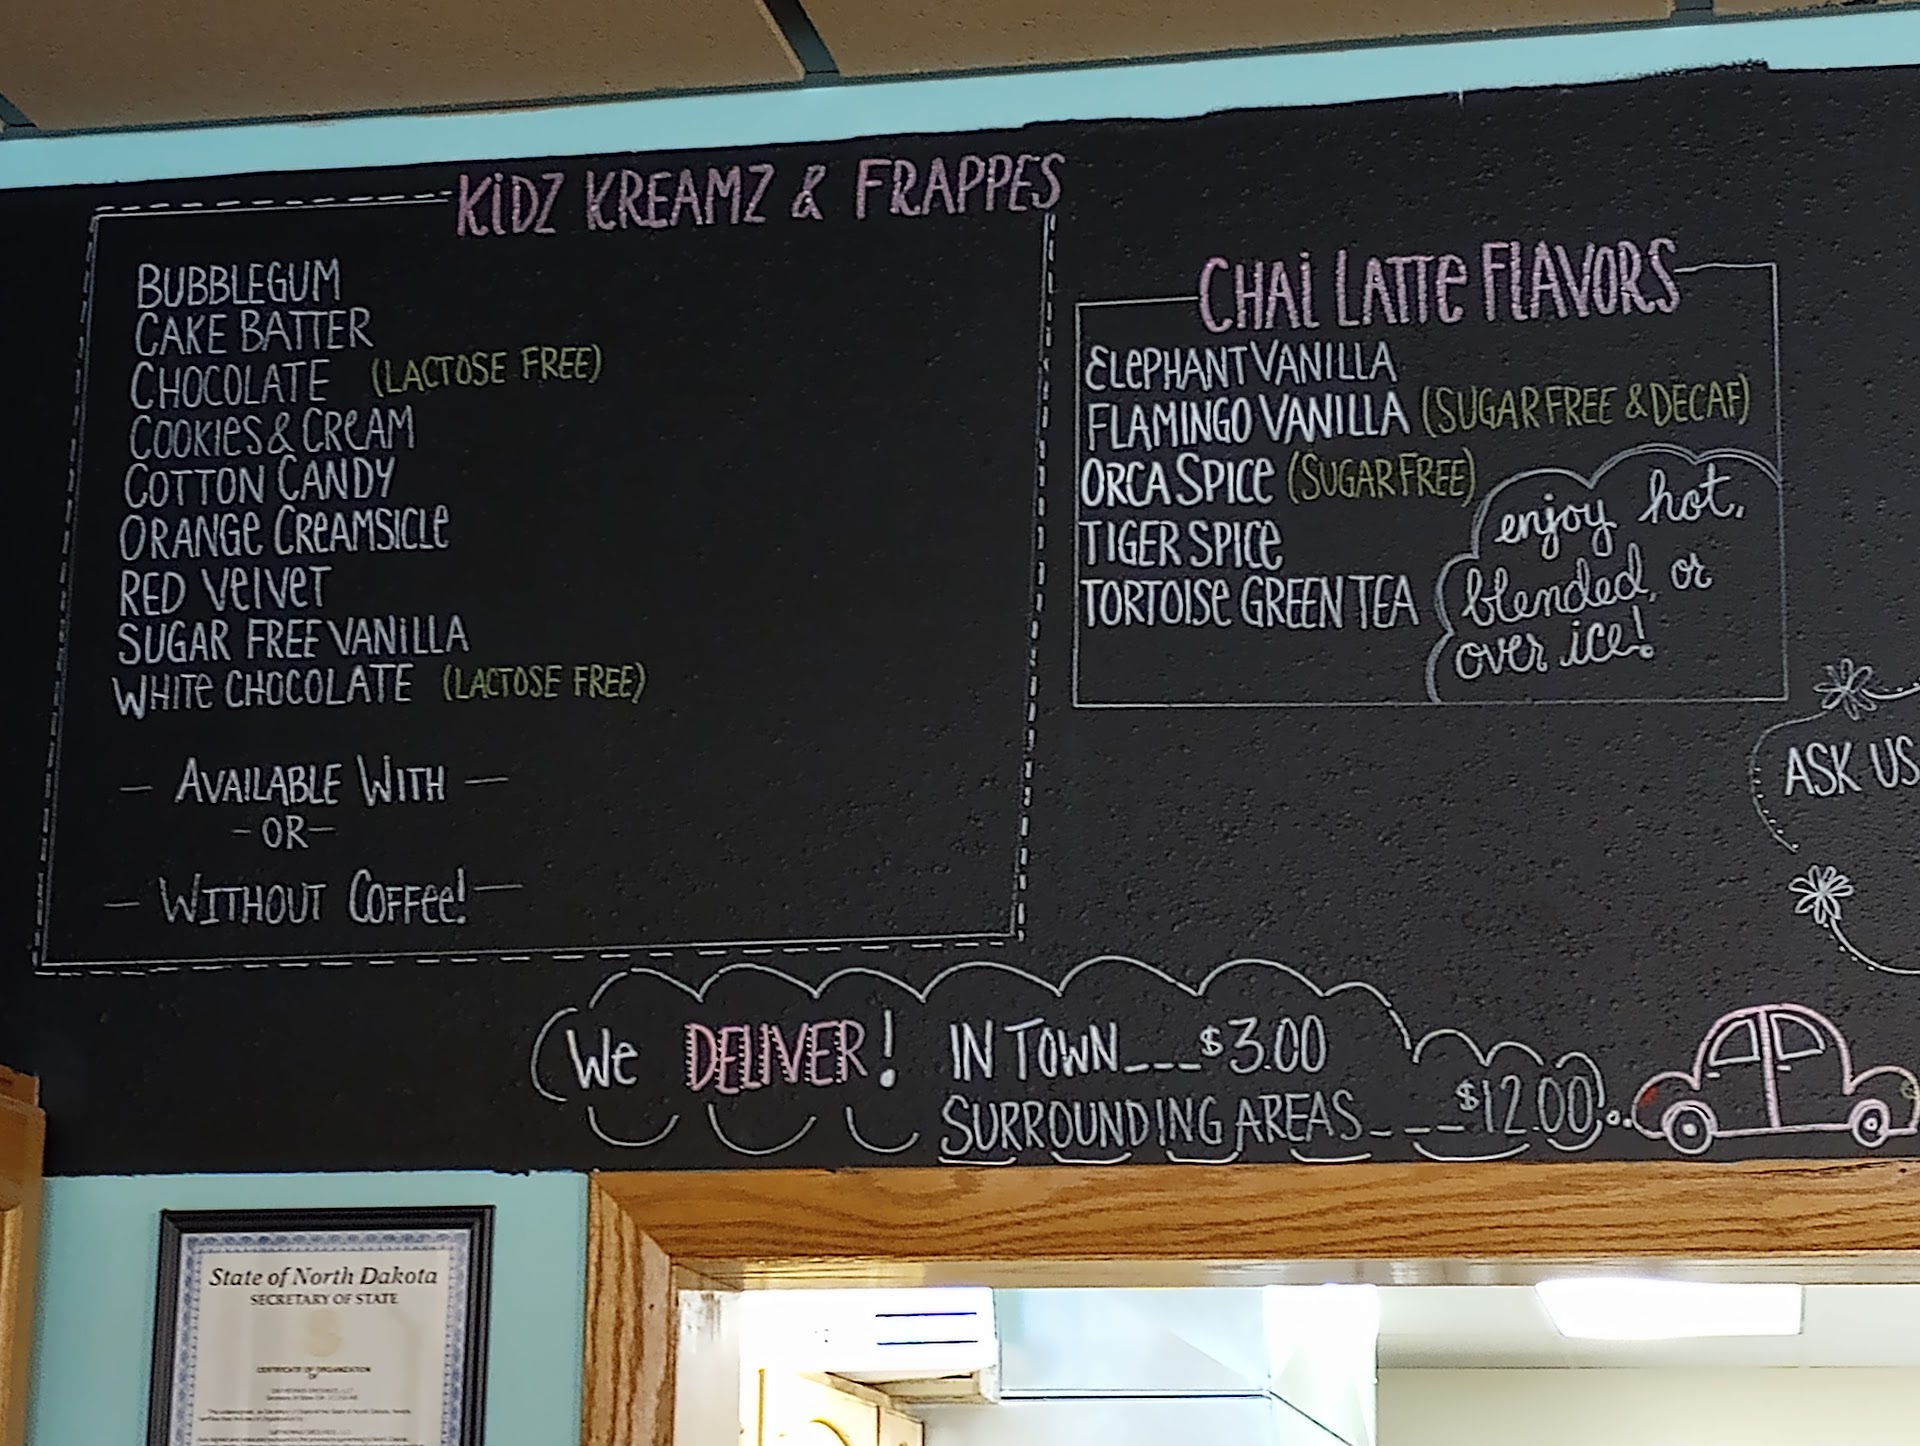 KiDZ KREAMZ & FRAPPES
BUBBLEGUM
CAKE BATTER
CHOCOLATE (LACTOSE FREE)
COOKIES & CREAM
COTTON CANDY
ORANGE CREAMSICLE
RED VELVET
SUGAR FREE VANILLA
WHITE CHOCOLATE (LACTOSE FREE)
— AVAILABLE WITH —
- OR -
— WITHOUT COFFEE! —
CHAI LATTE FLAVORS
ELEPHANT VANILLA
FLAMINGO VANILLA (SUGAR FREE & DECAF)
ORCA SPICE (SUGAR FREE)
TIGER SPICE
TORTOISE GREEN TEA
enjoy hot,
blended, or
over ice!
ASK US
We DELIVER! IN TOWN___$3.00
SURROUNDING AREAS____$12.00
State of North Dakota
SECRETARY OF STATE
CERTIFICATE OF ORGANIZATION
OF